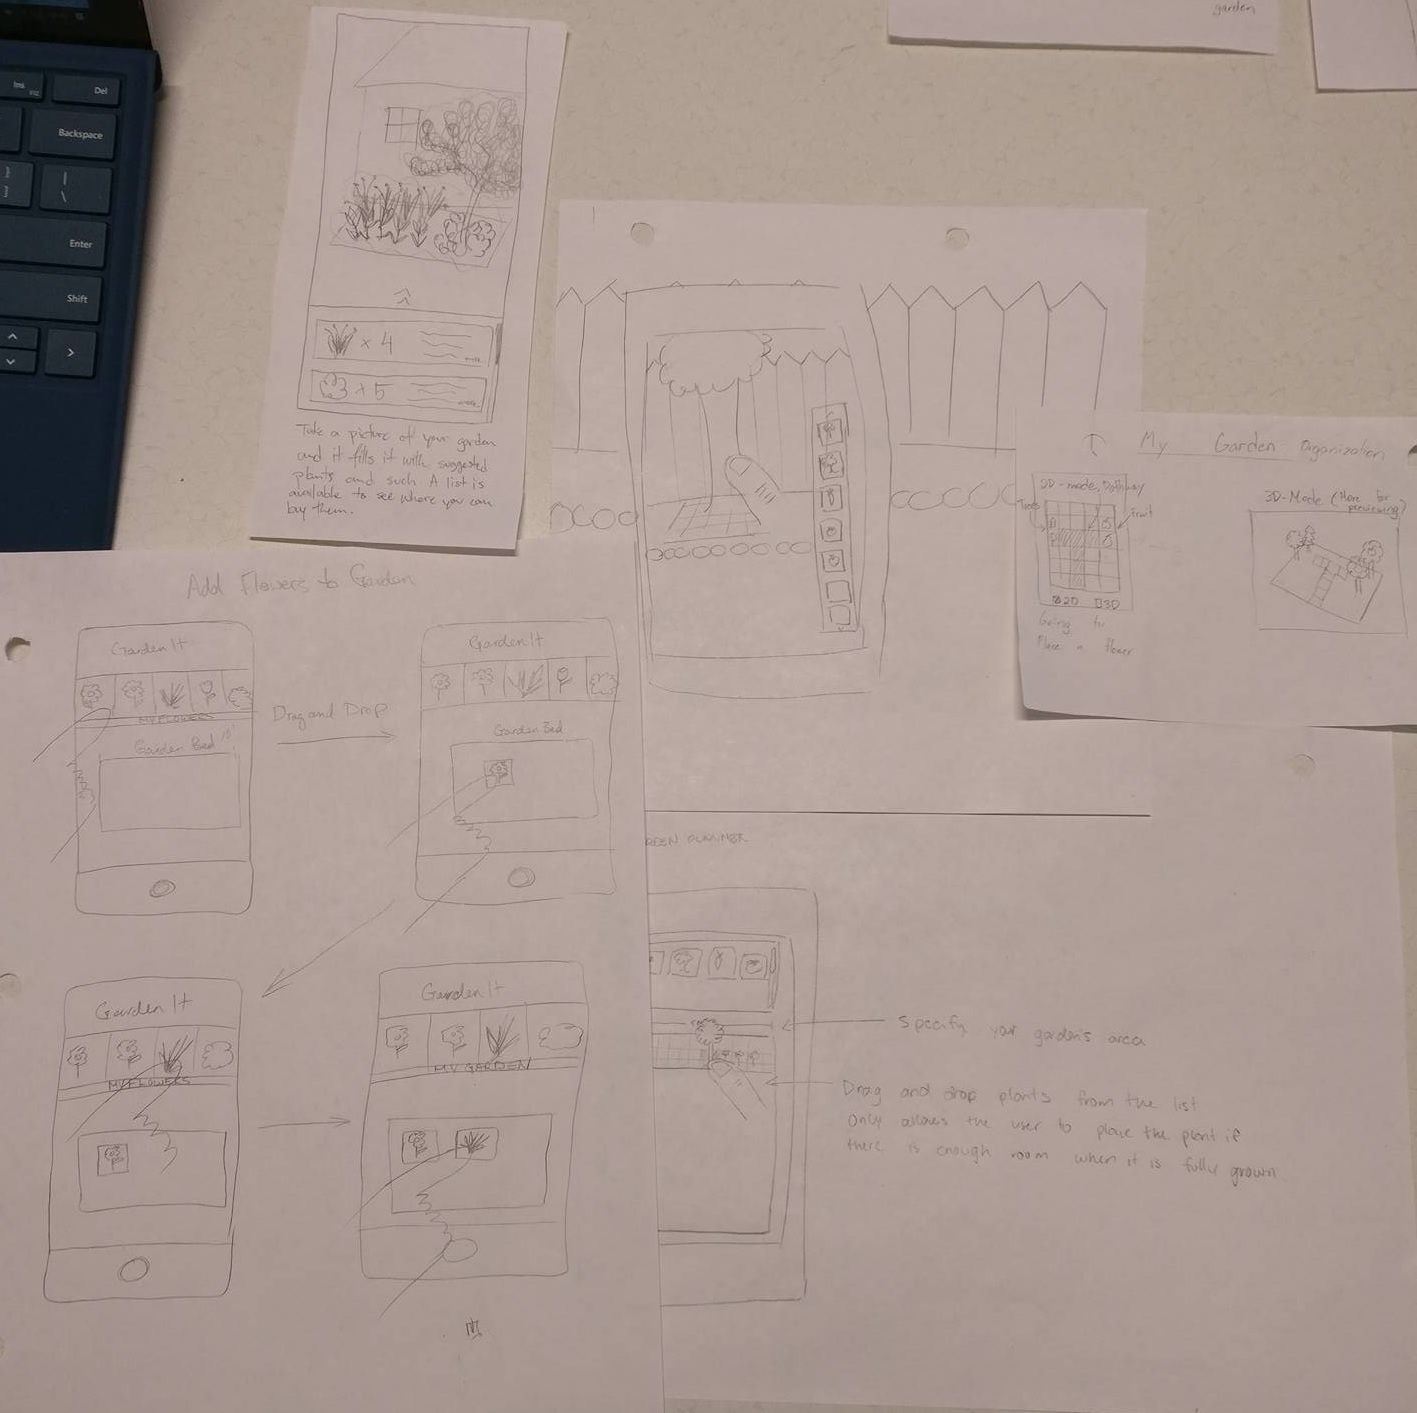 garden
Ins
Del
Backspace
}
]
|
\
Enter
Shift
x 4
x 5
Take a picture of your garden
and it fills it with suggested
plants and such A list is
available to see where you can
buy them.
My Garden Organization
2D-mode,
Trees
Fruit
2D 3D
Going for
Place a flower
3D-Mode (More for
previewing)
Add Flowers to Garden
Garden It
MY FLOWERS
Garden Bed 10'
Drag and Drop
Garden It
Garden Bed
Garden It
MY FLOWERS
Garden It
MY GARDEN
PLANNER
Specify your garden's area
Drag and drop plants from the list
Only allows the user to place the plant if
there is enough room when it is fully grown